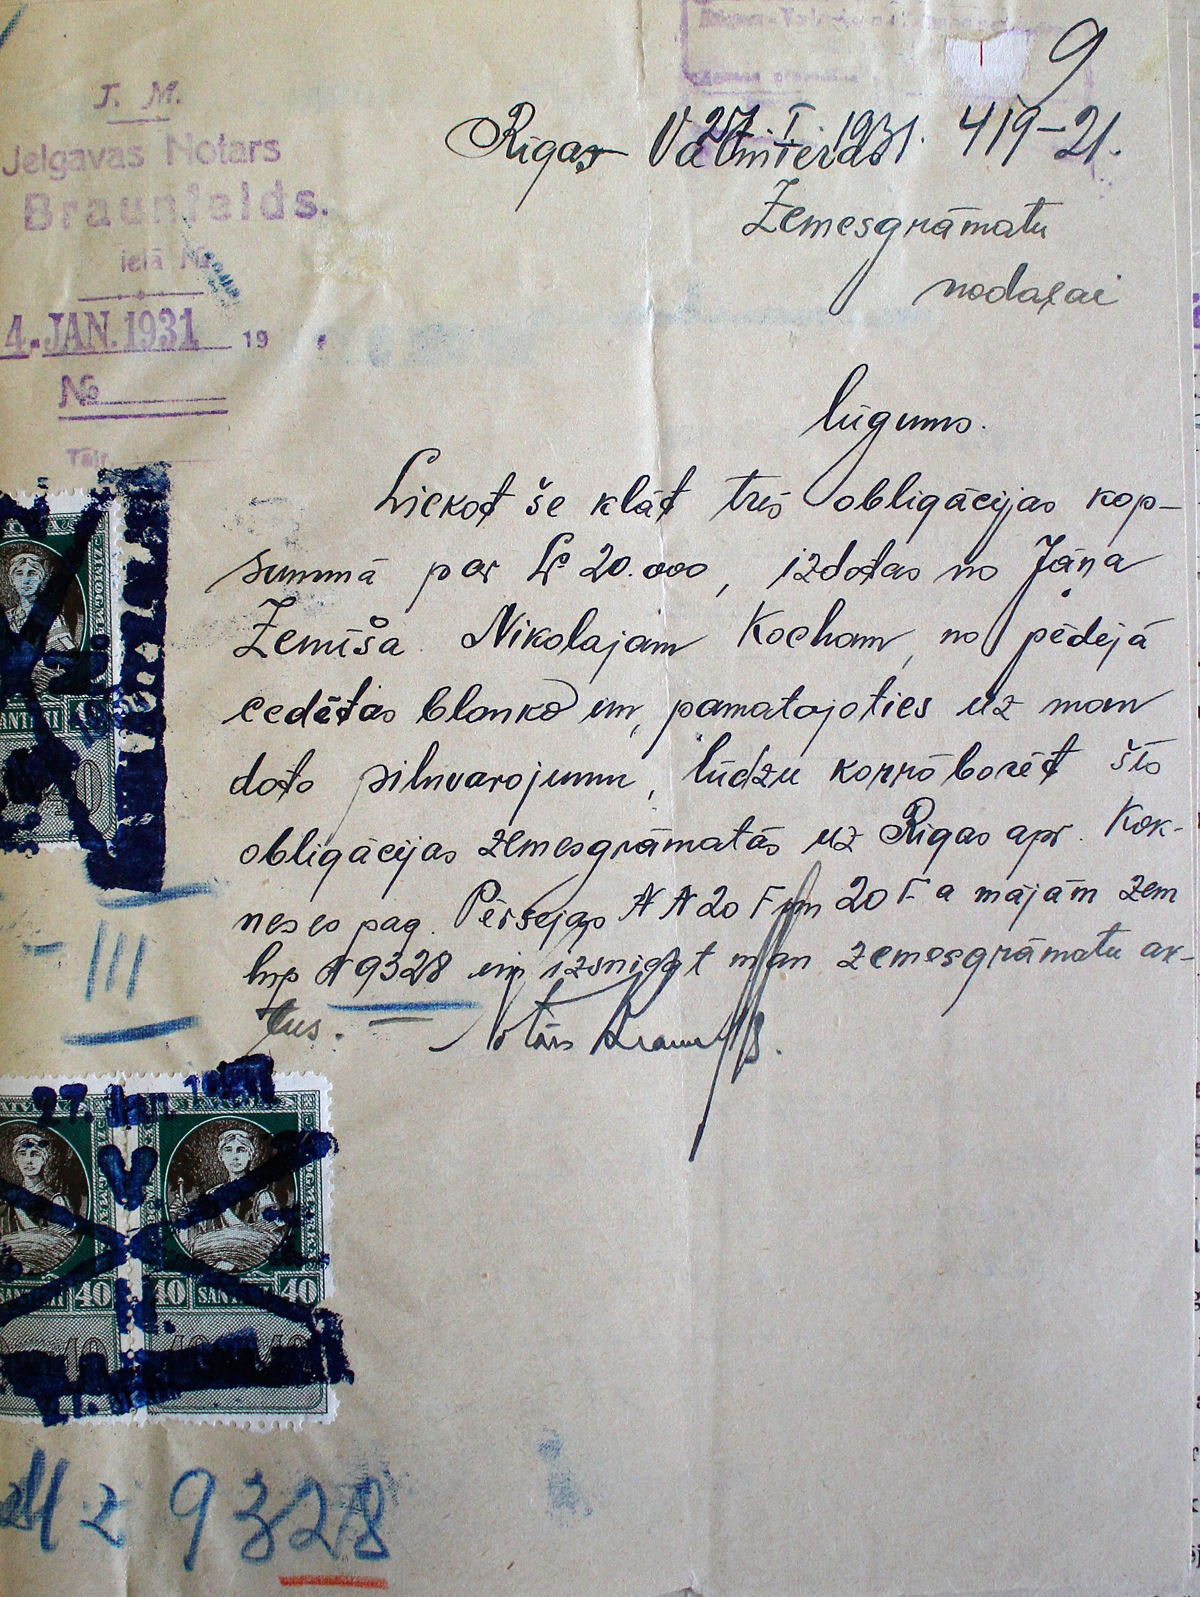 9
J. M.
Jelgavas Notars
Braunfelds.
ielā №
4. JAN. 1931 19
№
Tālr.
27. I 1931. 419-21.
Rīgas Valmieras
Zemesgrāmatu
nodaļai
lūgums.
Liekot še klāt tris obligācijas kop-
summā par Ls 20.000, izdotas no Jāņa
Zemīša Nikolajam Kocham, no pēdējā
cedētas blanko un, pamatojoties uz man
doto pilnvarojumu, lūdzu korroborēt šīs
obligācijas zemesgrāmatās uz Rīgas apr. Kok-
neses pag. Pērsejas N N 20 F un 20 F a mājām zem
hip N 9328 un izsniegt man zemesgrāmatu ak-
tus.
Notārs
III
27. Jan. 19
40 SANTIMI 40
9328